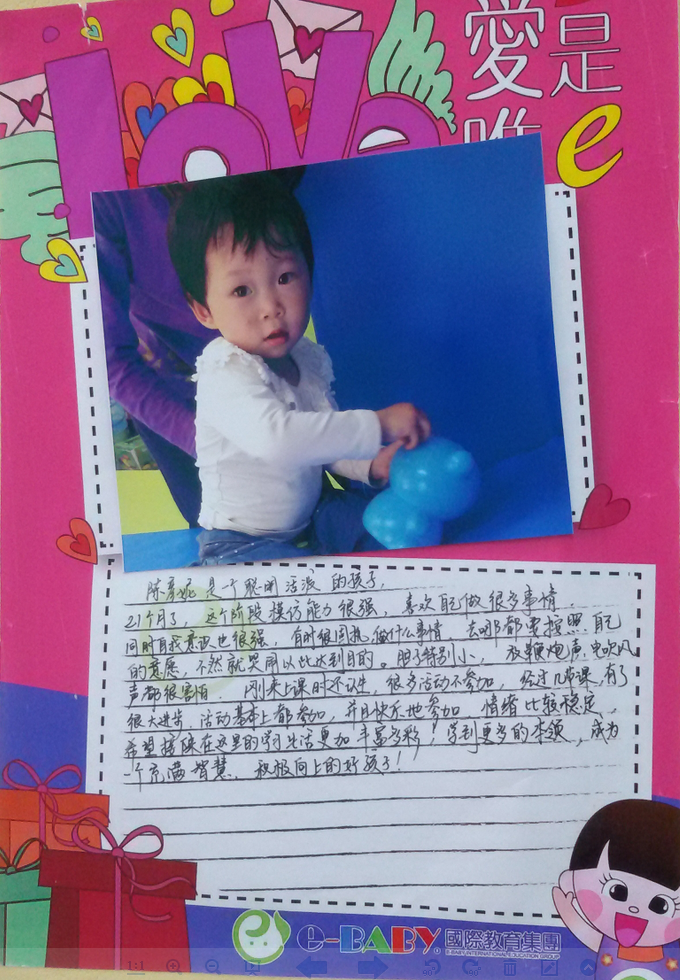 love
愛是
唯e
陈彦妮是一个聪明活泼的孩子,
21个月了,这个阶段模仿能力很强,喜欢自己做很多事情,
同时自我意识也很强,有时很固执,做什么事情、去哪都要按照自己
的意愿,不然就哭闹以此达到目的。胆子特别小,放鞭炮声,电吹风
声都很害怕 刚来上课时还认生,很多活动不参加,经过几节课,有了
很大进步,活动基本上都参加,并且快乐地参加 情绪比较稳定,
希望接续在这里的学习生活更加丰富多彩!学到更多的本领,成为
一个充满智慧、积极向上的好孩子!
e-BABY 國際教育集團
E-BABY INTERNATIONAL EDUCATION GROUP
1:1